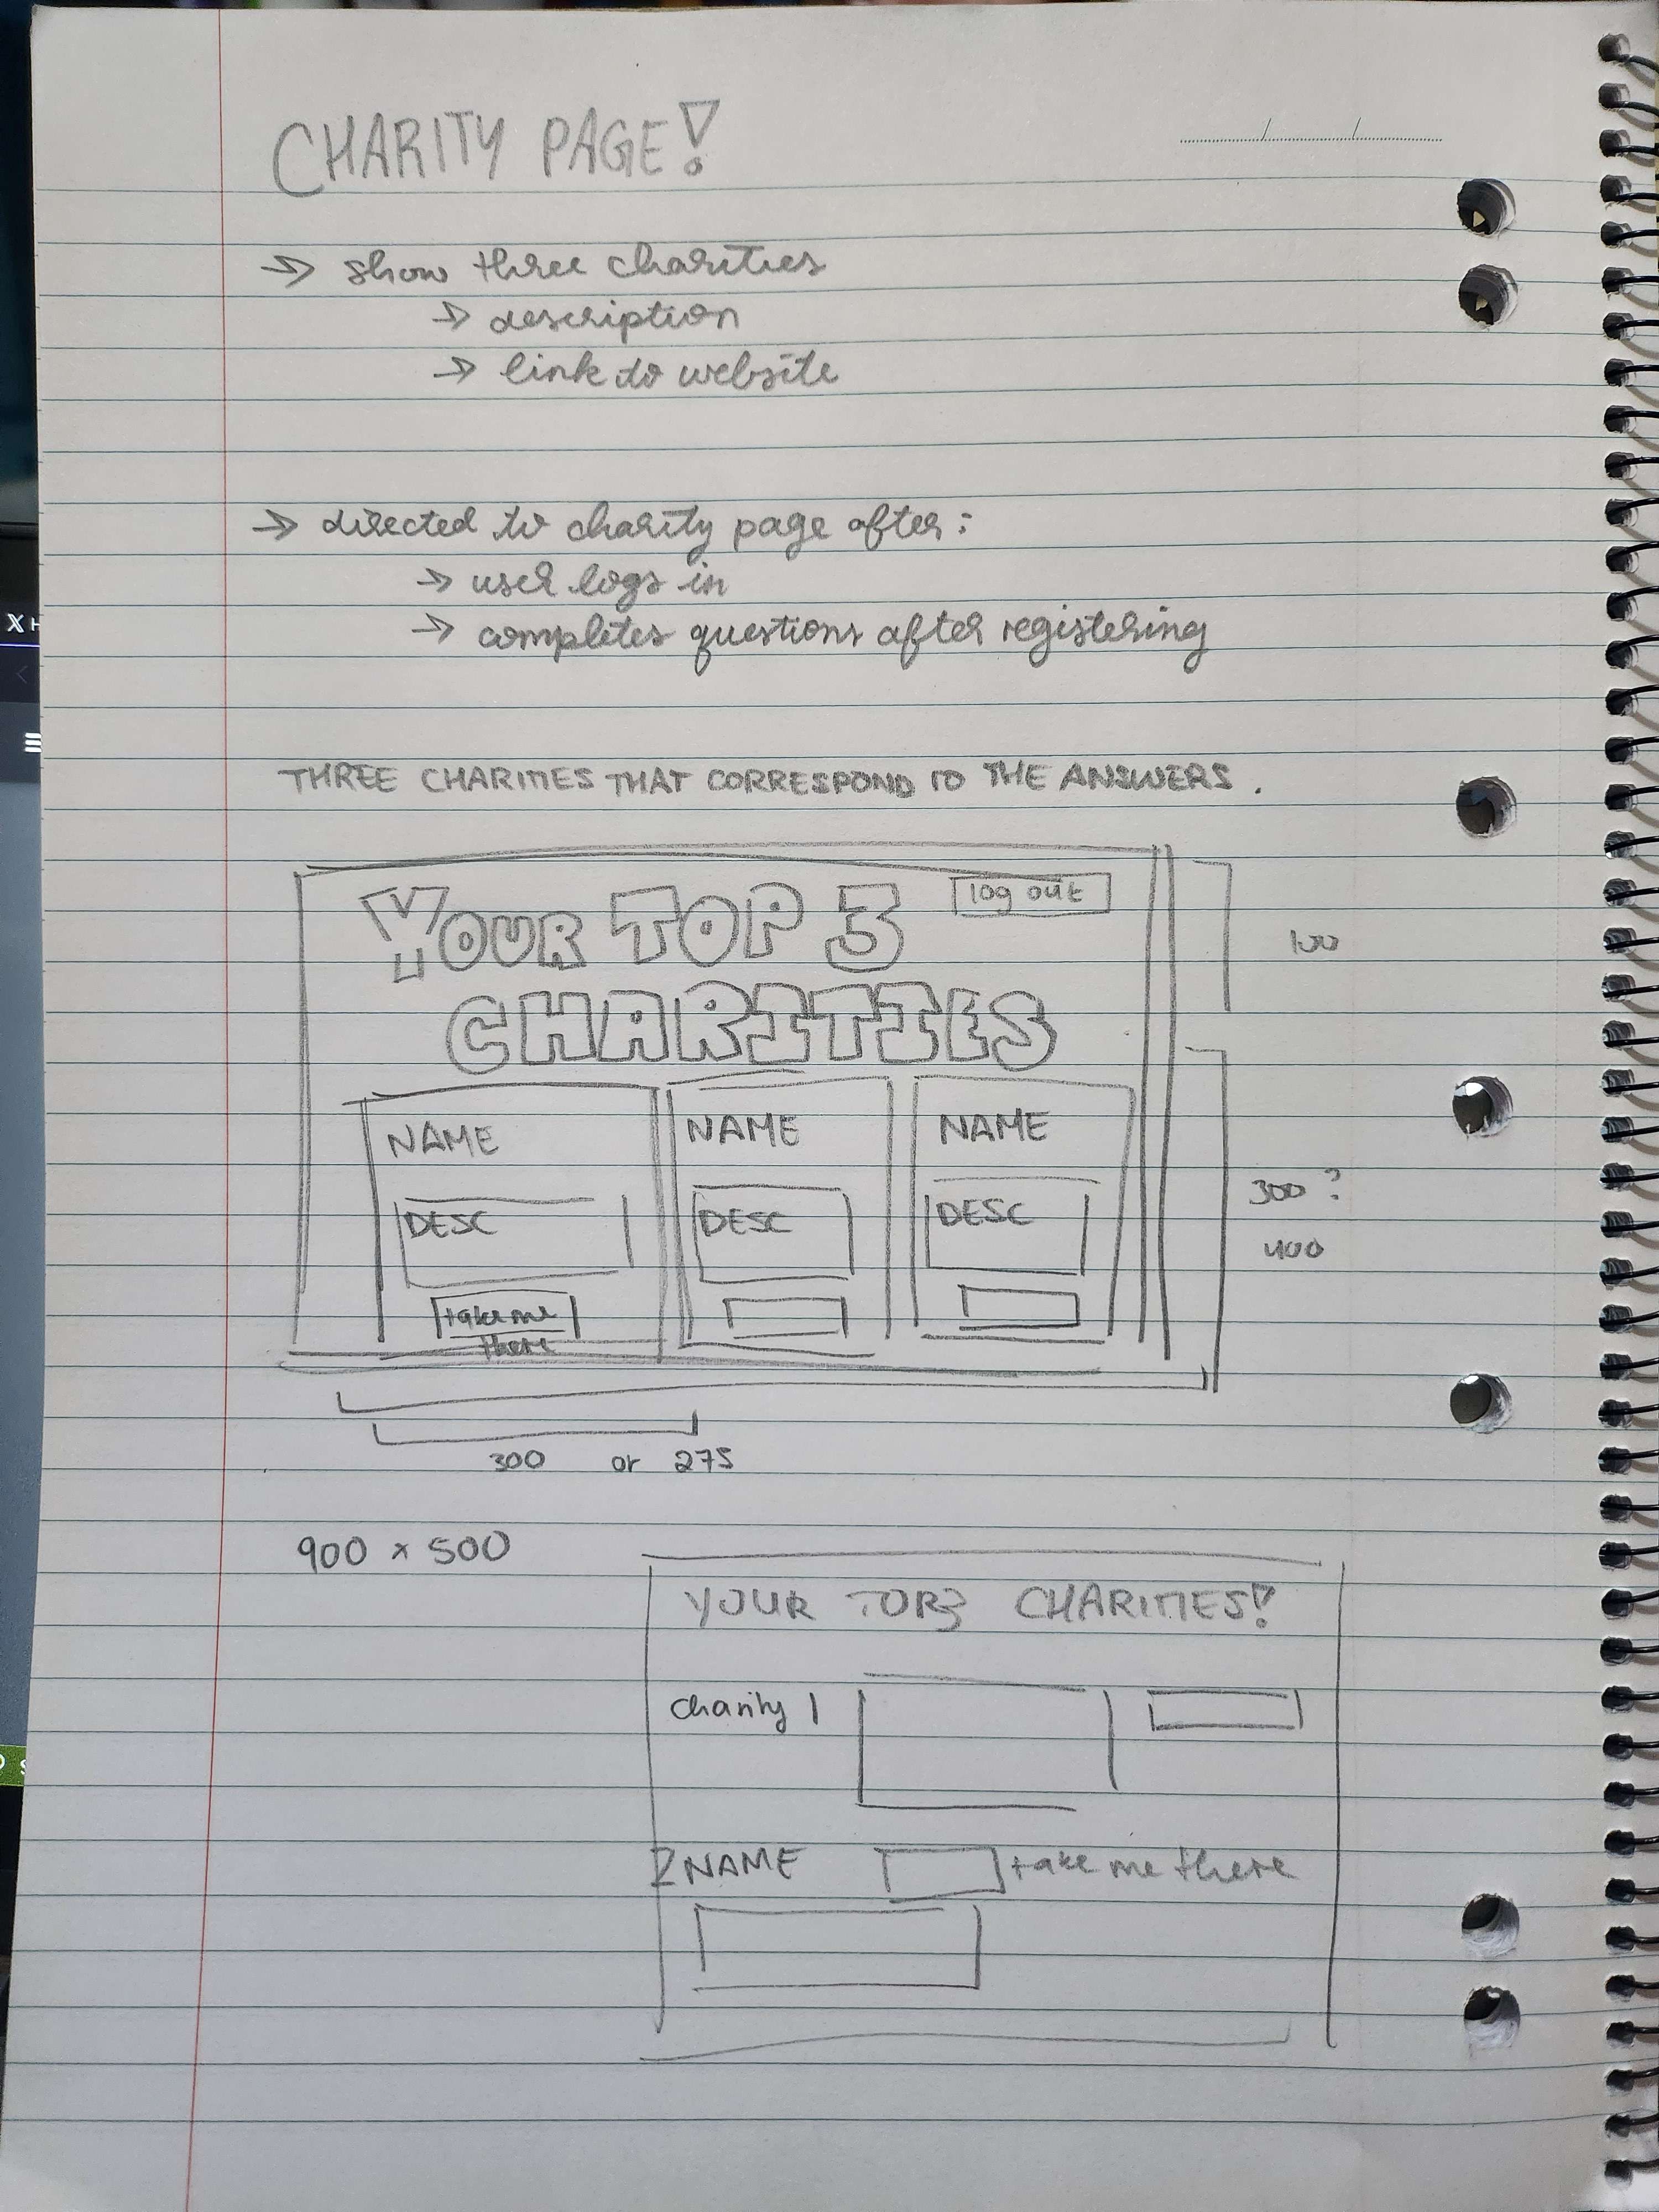 CHARITY PAGE!
→ show three charities
→ description
→ link to website
→ directed to charity page after:
→ user logs in
→ completes questions after registering
THREE CHARITIES THAT CORRESPOND TO THE ANSWERS.
log out
YOUR TOP 3
CHARITIES
100
NAME NAME NAME
DESC DESC DESC
take me
there
300?
400
300 or 275
900 x 500
YOUR TOP 3 CHARITIES!
charity 1
2 NAME take me there
X H